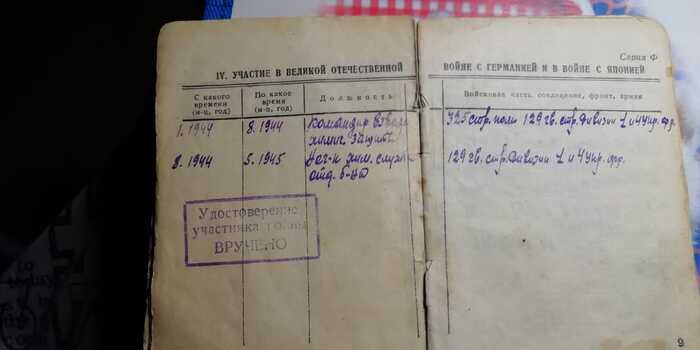 Серия Ф
IV. УЧАСТИЕ В ВЕЛИКОЙ ОТЕЧЕСТВЕННОЙ ВОЙНЕ С ГЕРМАНИЕЙ И В ВОЙНЕ С ЯПОНИЕЙ
С какого времени (м-ц, год)
По какое время (м-ц, год)
Должность
Войсковая часть, соединение, фронт, армия
1.1944 8.1944 Командир взвода 325 стр. полк 129 гв. стр. дивизии 1 и 4 Укр.
защиты
8.1944 5.1945 Нач-к хим. службы 129 гв. стр. дивизии 1 и 4 Укр.
отд. б-на
Удостоверение
участника войны
ВРУЧЕНО
9